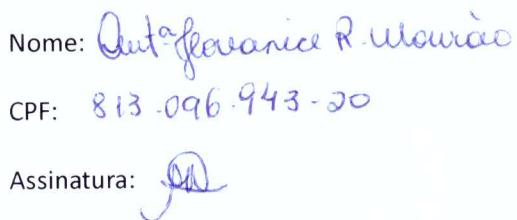 Nome: Antª Geovanice R. Mourão
CPF: 813.096.943-20
Assinatura: